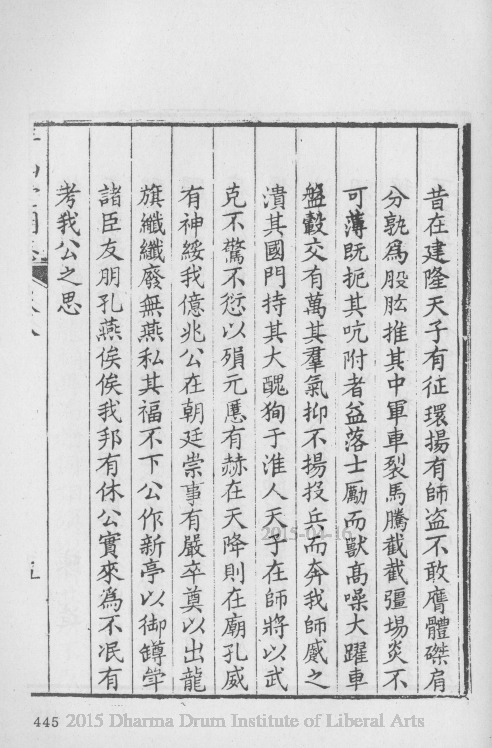 昔在建隆天子有征環揚有師盗不敢膺體磔肩
分孰爲股肱推其中軍車裂馬騰截截彊埸炎不
可薄既扼其吭附者益落士勵而獸高噪大躍車
盤轂交有萬其羣氣抑不揚投兵而奔我師蹙之
潰其國門持其大醜狥于淮人天子在師將以武
克不驚不愆以殞元慝有赫在天降則在廟孔威
有神綏我億兆公在朝廷崇事有嚴卒奠以出龍
旗纖纖廢無燕私其福不下公作新亭以御罇斝
諸臣友朋孔燕俟俟我邦有休公實來爲不泯有
考我公之思
五
2015-04-16
445 2015 Dharma Drum Institute of Liberal Arts